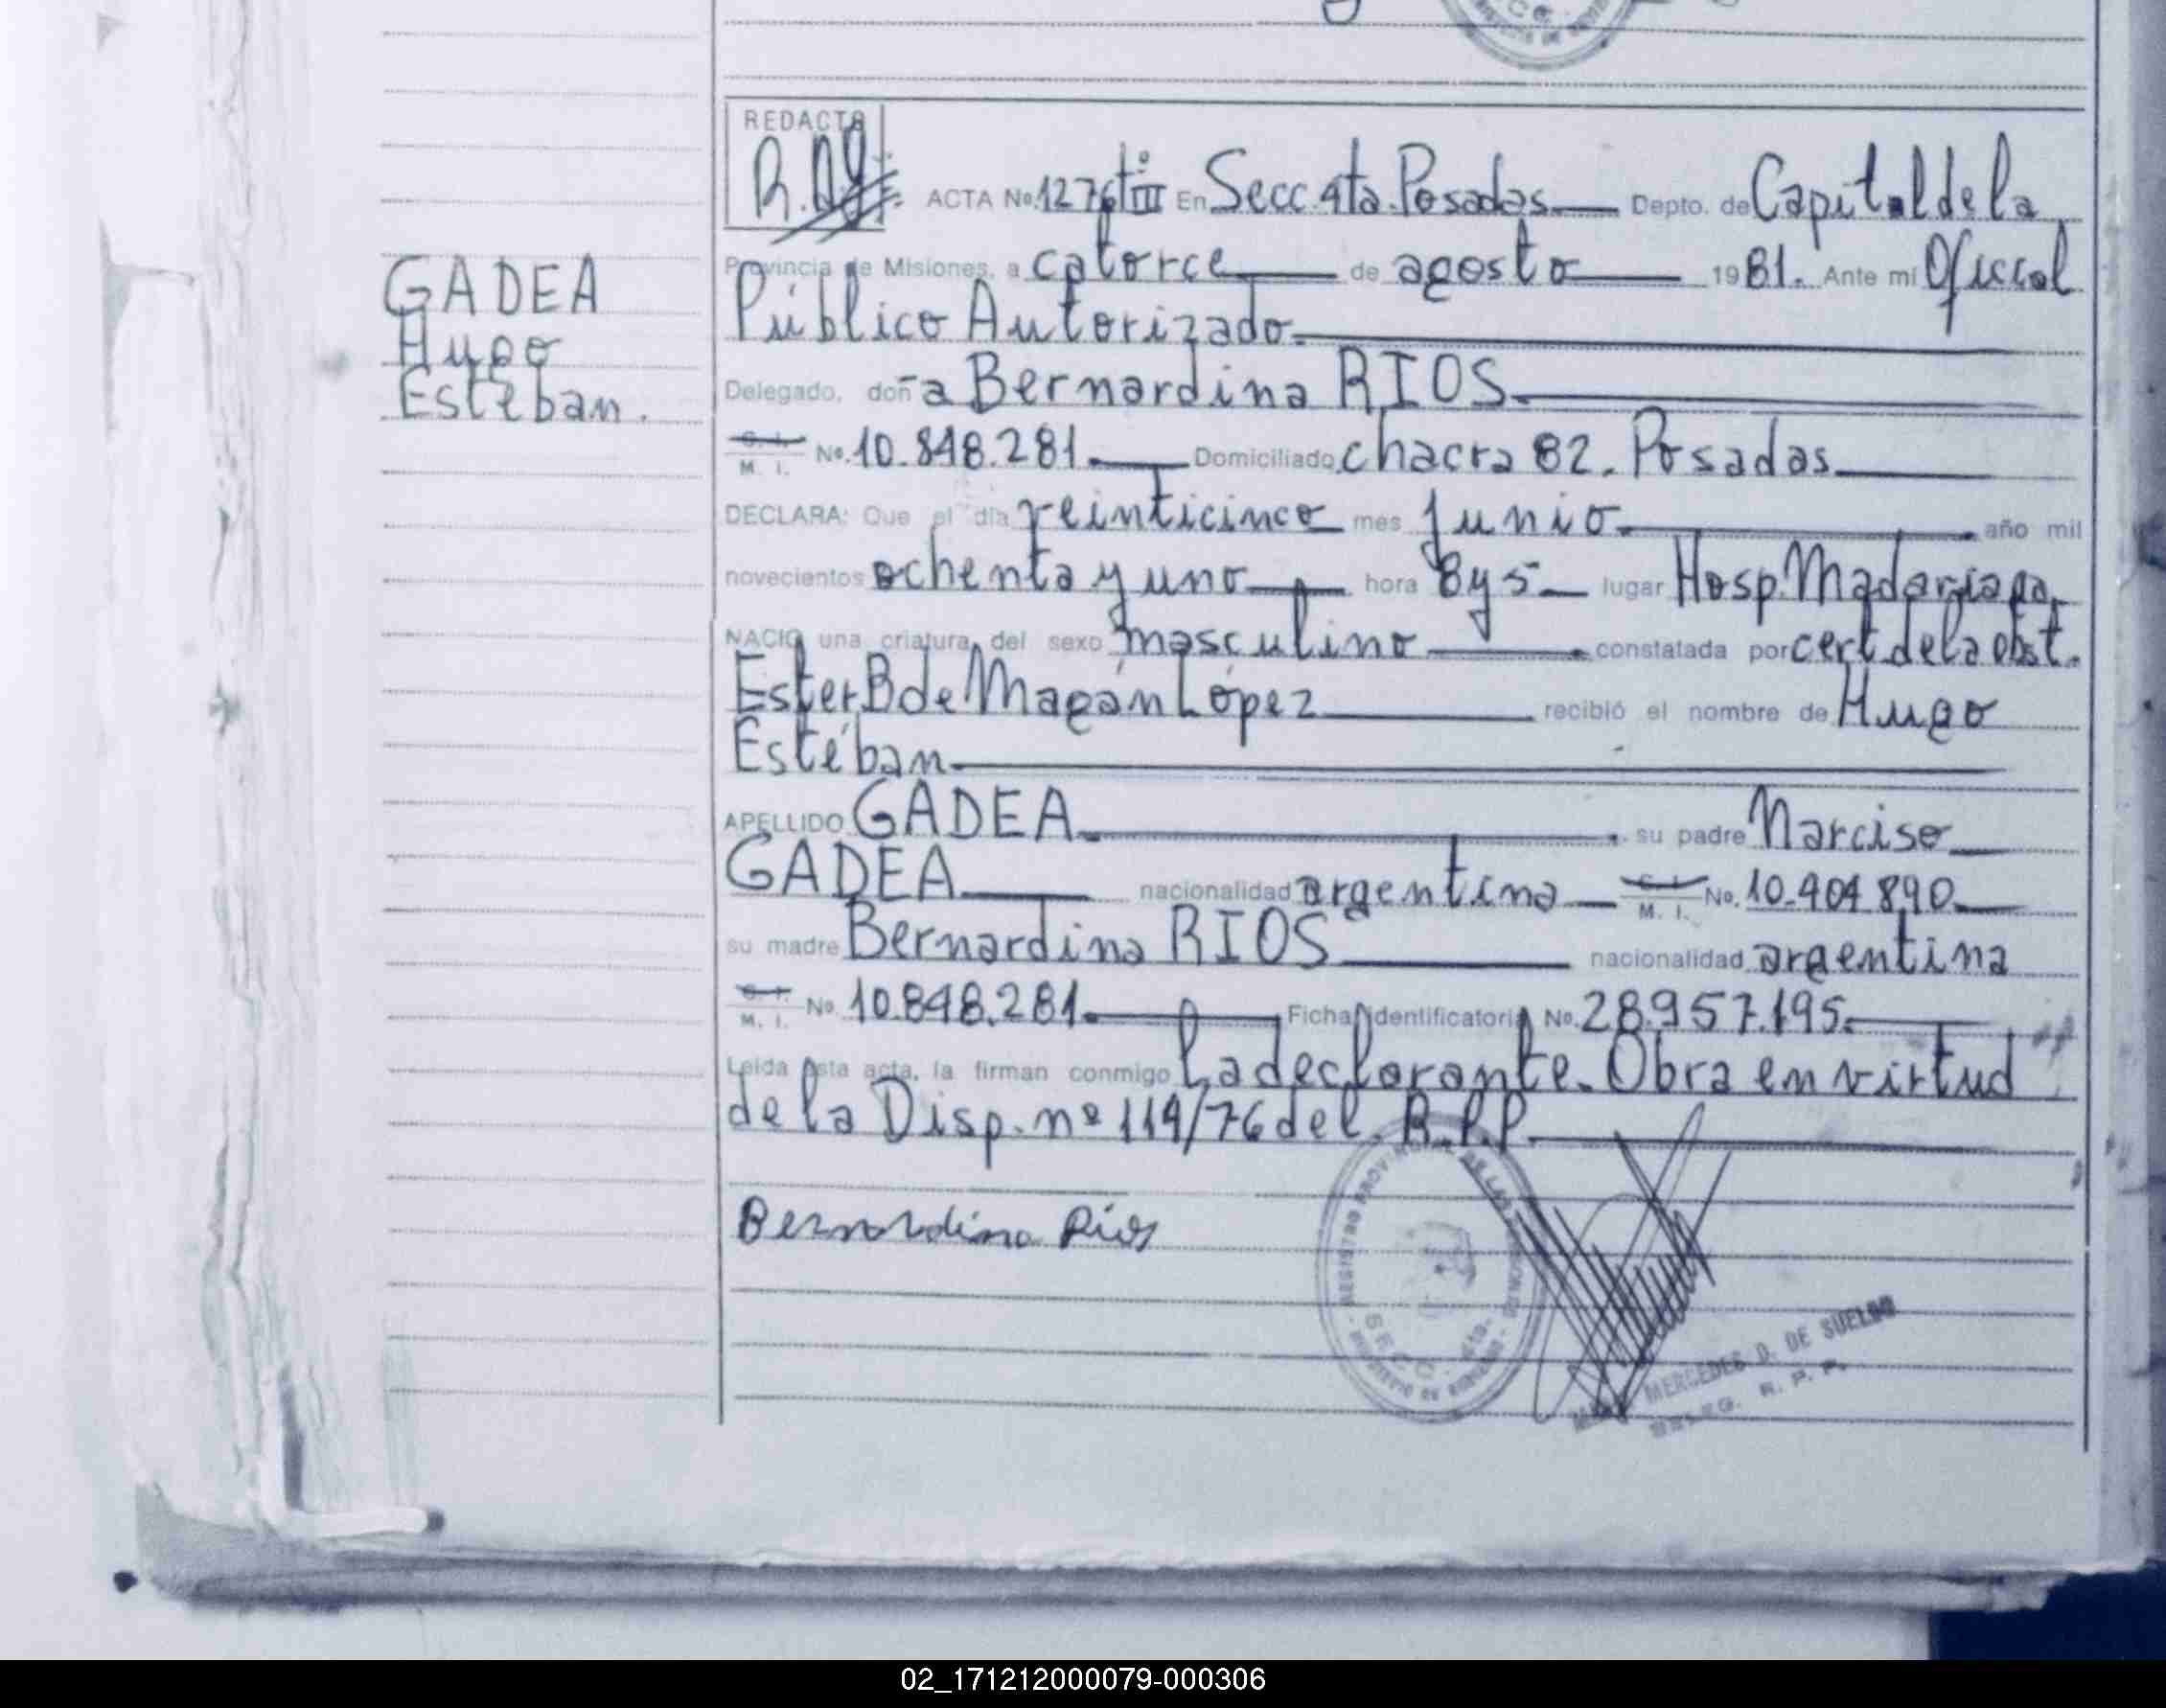 REDACTO
ACTA No. 1276 tº III En Secc. 4ta. Posadas Depto. de Capital de la
Provincia de Misiones, a catorce de agosto 1981. Ante mi Oficial
Público Autorizado.
Delegado, doña Bernardina RIOS.
C. I. M. I. No. 10.848.281. Domiciliado chacra 82. Posadas
DECLARA: Que el día veinticinco mes junio año mil
novecientos ochenta y uno hora 8 y 5 lugar Hosp. Madariaga,
NACIO una criatura, del sexo masculino constatada por cert. de la obst.
Ester B de Magán López recibió el nombre de Hugo
Estéban.
APELLIDO GADEA. su padre Narciso
GADEA nacionalidad argentina C. I. M. I. No. 10.404.890
su madre Bernardina RIOS nacionalidad argentina
C. I. M. I. No. 10.848.281. Ficha Identificatoria No. 28.957.195.
Leída esta acta, la firman conmigo La declarante. Obra en virtud
de la Disp. nº 114/76 del R.P.P.
Bernardina Rios
GADEA
Hugo
Estéban.
MERCEDES D. DE SUELDO
DELEG. R. P. P.
02_171212000079-000306